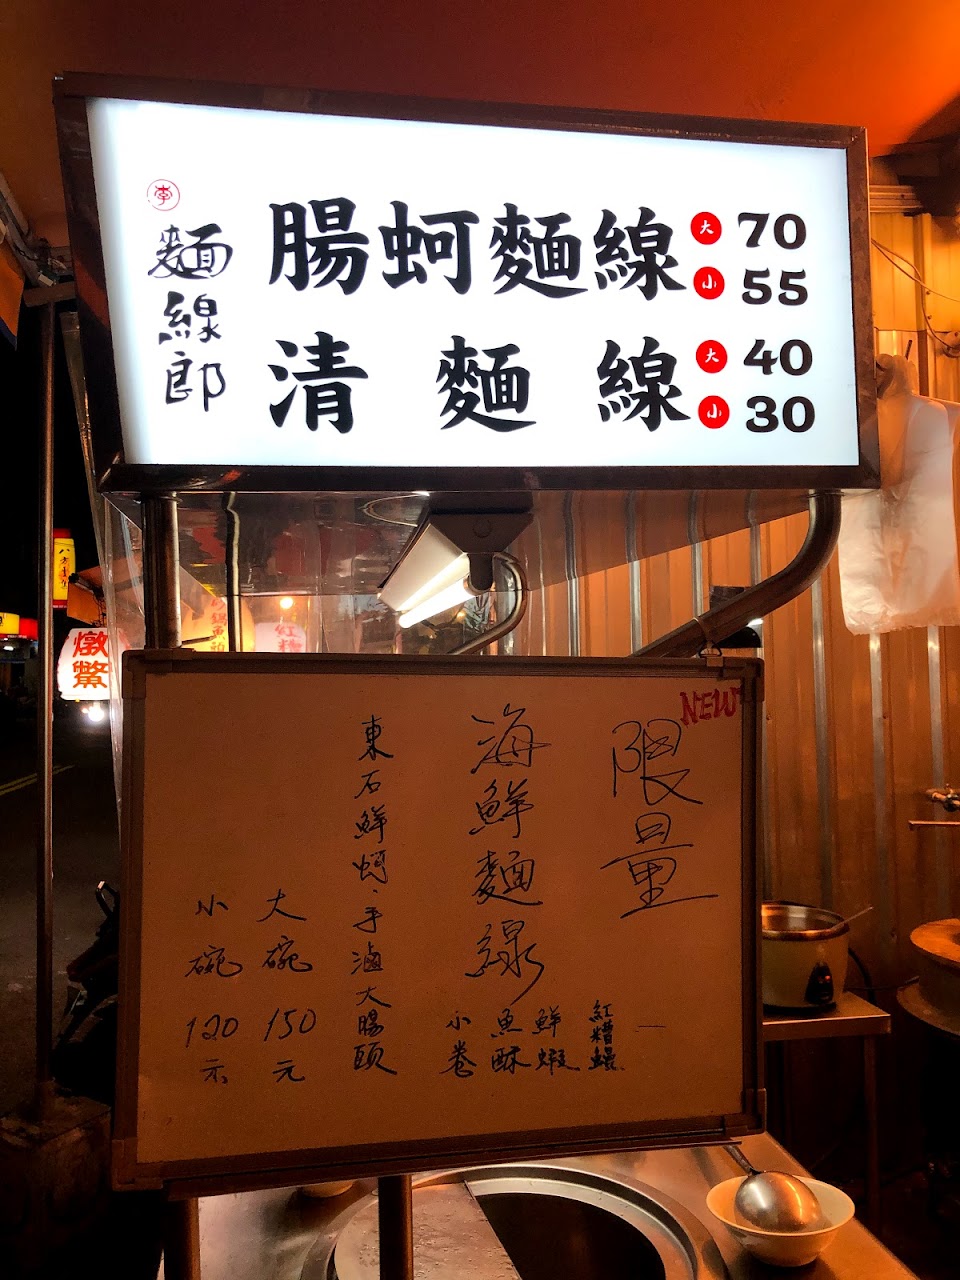 李
麵線郎
腸蚵麵線 大 70
小 55
清麵線 大 40
小 30
燉鱉
NEW
限量
海鮮麵線
紅糟鰻
鮮蝦
魚酥
小卷
東石鮮蚵、手滷大腸頭
大碗 150元
小碗 120元